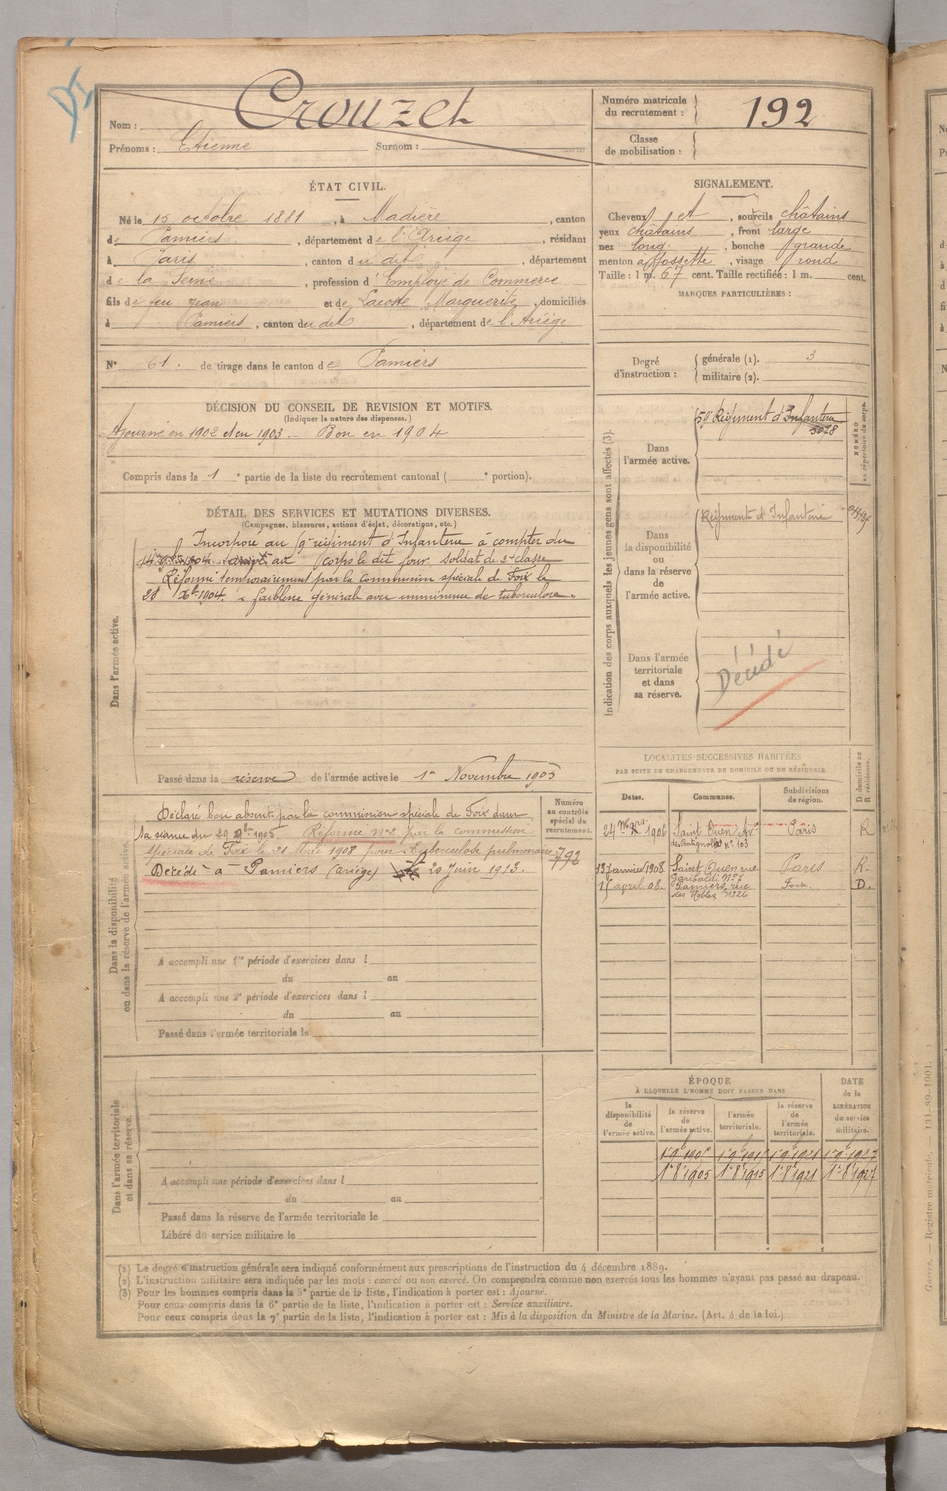 Nom : Crouzet
Prénoms : Etienne Surnom :
Numéro matricule du recrutement : 192
Classe de mobilisation :
ÉTAT CIVIL.
Né le 15 octobre 1881, à Madière, canton
de Pamiers, département de l'Ariège, résidant
à Paris, canton du dit, département
de la Seine, profession d'Employé de Commerce
fils de feu Jean et de Lacoste Marguerite, domiciliés
à Pamiers, canton du dit, département de l'Ariège
N° 61. de tirage dans le canton de Pamiers
SIGNALEMENT.
Cheveux et, sourcils châtains
yeux châtains, front large
nez long, bouche grande
menton à fossette, visage rond
Taille : 1 m. 67 cent. Taille rectifiée : 1 m. cent.
MARQUES PARTICULIÈRES :
Degré d'instruction : générale (1). 3
militaire (2).
DÉCISION DU CONSEIL DE REVISION ET MOTIFS.
(Indiquer la nature des dispenses.)
Ajourné en 1902 et en 1903. Bon en 1904
Compris dans la 1e partie de la liste du recrutement cantonal ( e portion).
DÉTAIL DES SERVICES ET MUTATIONS DIVERSES.
(Campagnes, blessures, actions d'éclat, décorations, etc.)
Dans l'armée active.
Incorporé au régiment d'Infanterie à compter du
1904. arrivé au corps le dit jour. Soldat de 2e classe
Réformé temporairement par la commission spéciale de Foix le
28 Xbre 1904. faiblesse générale avec imminence de tuberculose.
Passé dans la réserve de l'armée active le 1er Novembre 1905
Indication des corps auxquels les jeunes gens sont affectés (3).
NUMÉRO au répertoire du corps.
Dans l'armée active.
59e Régiment d'Infanterie
5028
Dans la disponibilité ou dans la réserve de l'armée active.
Régiment d'Infanterie
Dans l'armée territoriale et dans sa réserve.
Décédé
Dans la disponibilité ou dans la réserve de l'armée active.
Numéro au contrôle spécial du recrutement.
Déclaré bon absent par la commission spéciale de Foix dans
sa séance du 29 9bre 1905. Réformé n°2 par la commission
spéciale de Foix le 21 1908 pour tuberculose pulmonaire
792
Décédé à Pamiers (Ariège) le 20 Juin 1913.
A accompli une 1re période d'exercices dans l
du au
A accompli une 2e période d'exercices dans l
du au
Passé dans l'armée territoriale le
LOCALITÉS SUCCESSIVES HABITÉES
PAR SUITE DE CHANGEMENTS DE DOMICILE OU DE RÉSIDENCE.
Dates. Communes. Subdivisions de région. D domicile ou R résidence.
24 1906 Saint Ouen Av. des Batignolles n° 103 Paris R
13 janvier 1908 Saint Ouen rue Garibaldi n°7 Paris R.
15 avril 08. Pamiers, rue des Nobles n°26 Foix D.
Dans l'armée territoriale et dans sa réserve.
A accompli une période d'exercices dans l
du au
Passé dans la réserve de l'armée territoriale le
Libéré du service militaire le
ÉPOQUE
À LAQUELLE L'HOMME DOIT PASSER DANS
DATE de la LIBÉRATION du service militaire.
la disponibilité de l'armée active. la réserve de l'armée active. l'armée territoriale. la réserve de l'armée territoriale.
1er 8bre 1905 1er 8bre 1915 1er 8bre 1921 1er 8bre 1927
(1) Le degré d'instruction générale sera indiqué conformément aux prescriptions de l'instruction du 4 décembre 1889.
(2) L'instruction militaire sera indiquée par les mots : exercé ou non exercé. On comprendra comme non exercés tous les hommes n'ayant pas passé au drapeau.
(3) Pour les hommes compris dans la 5e partie de la liste, l'indication à porter est : Ajourné.
Pour ceux compris dans la 6e partie de la liste, l'indication à porter est : Service auxiliaire.
Pour ceux compris dans la 7e partie de la liste, l'indication à porter est : Mis à la disposition du Ministre de la Marine. (Art. 4 de la loi.)